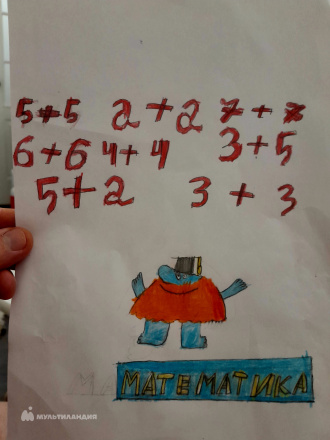 5+5 2+2 7+7
6+6 4+4 3+5
5+2 3+3
МАТЕМАТИКА
МУЛЬТИЛАНДИЯ